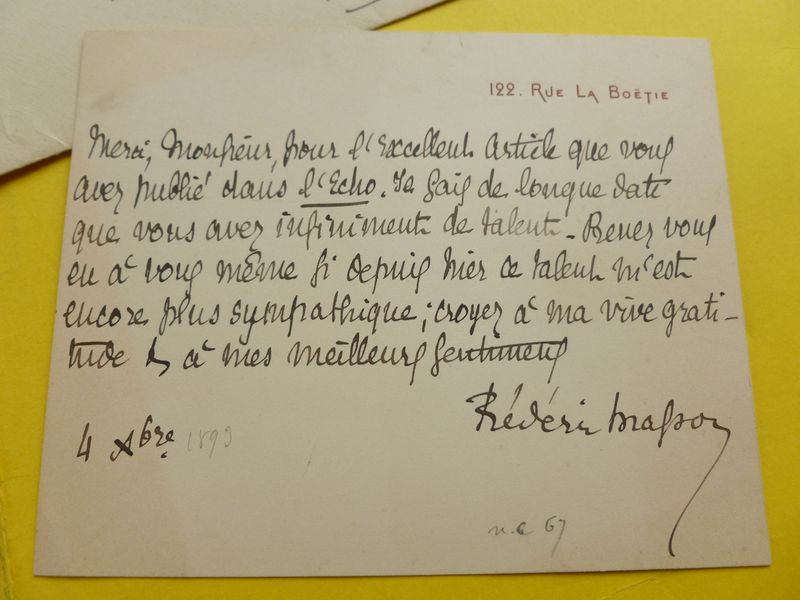 122. RUE LA BOËTIE
Merci, Monsieur, pour l'Excellent article que vous
avez publié dans l'Echo. Je sais de longue date
que vous avez infiniment de talent - Prenez vous
en à vous même si depuis hier ce talent m'est
encore plus sympathique; croyez à ma vive grati-
tude & à mes meilleurs sentiments
Frédéric Masson
4 Xbre 1893
n.a 67